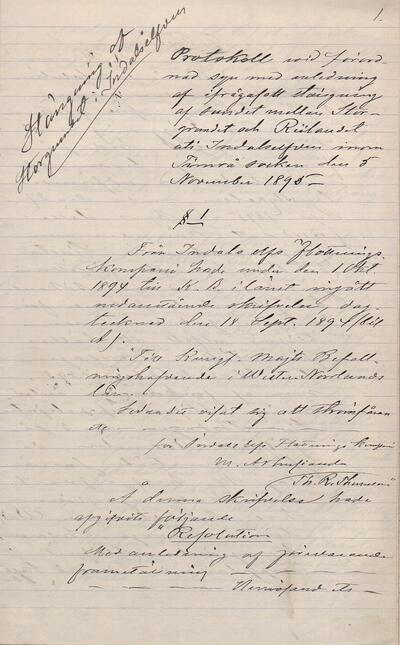 1.
Stängning af
Storgrundet i Indalselfven
Protokoll wid förord-
nad syn med anledning
af ifrågasatt stängning
af sundet mellan Stor-
grundet och Rülandet
uti Indalselfven inom
Timrå socken den 5
November 1895 -
§ 1
Från Indals elfs Flottnings
kompani hade under den 1 Okt.
1894 till K. B. i länet ingått
nedanstående skrifvelse, dag
tecknad den 18 Sept. 1894 (bil
A).
"Till Kungl. Majts Befall-
ningshafvande i Wester Norrlands
Län.
Sedan det visat sig att
för Indals elfs Flottnings Kompani
Th. R.
Å denna skrifvelse hade
afgifvits följande
"Resolution
Med anledning af förevarande
framställning
Hernösand etc -